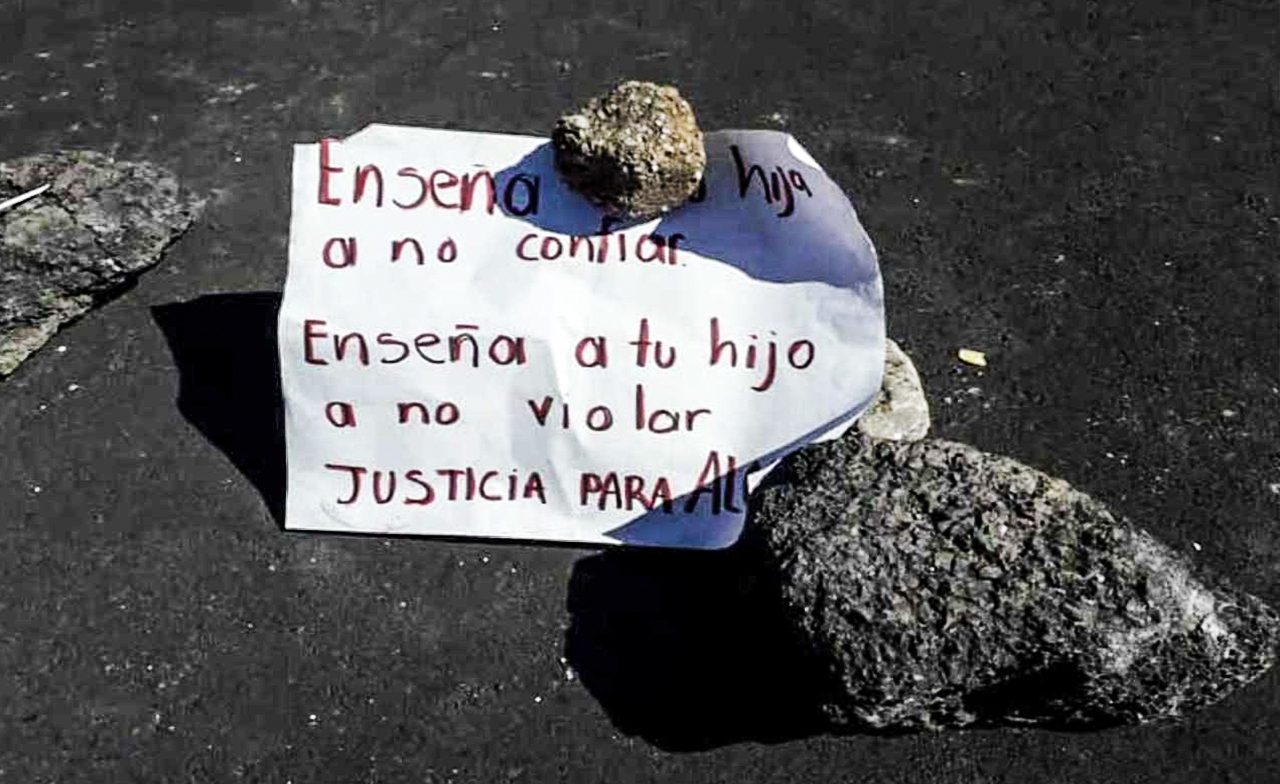 Enseña hija
a no confiar.
Enseña a tu hijo
a no violar
JUSTICIA PARA